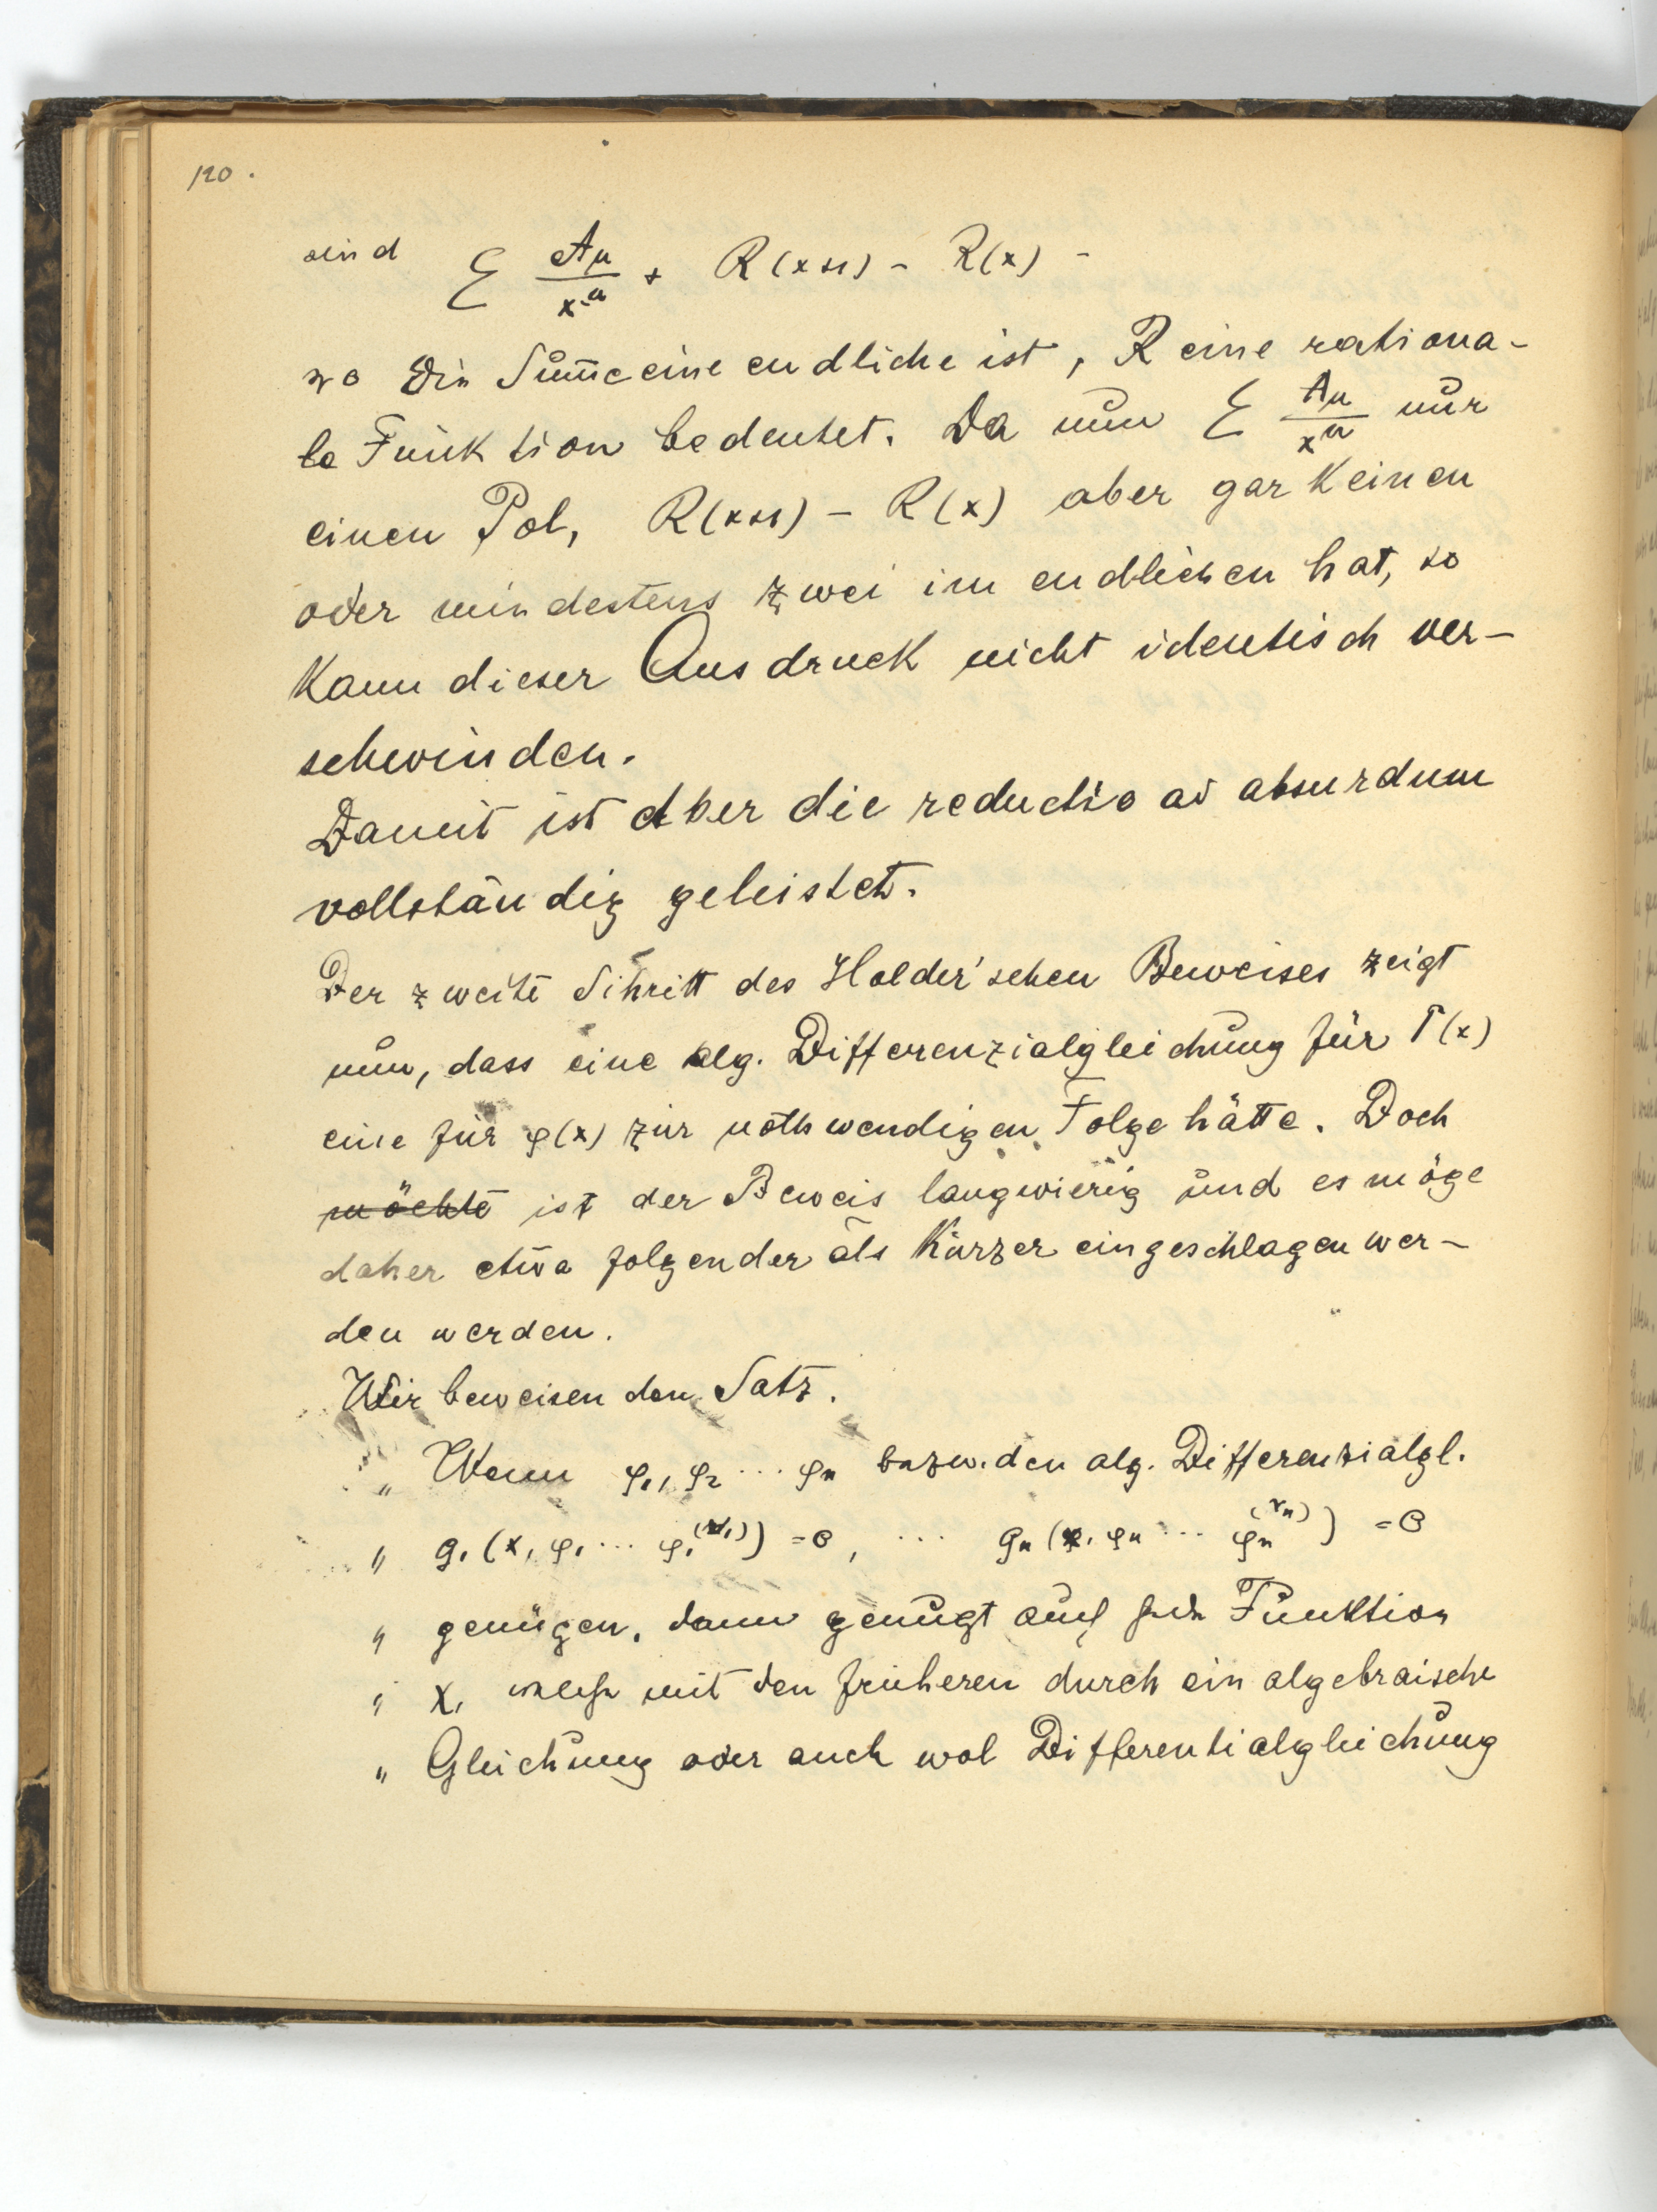 120.
sind Σ Aμ/x^μ + R(x+1) - R(x) -
wo die Sum̅e eine endliche ist, R eine rationa-
le Funktion bedeutet. Da nun Σ Aμ/x^μ nur
einen Pol, R(x+1) - R(x) aber gar keinen
oder mindestens zwei im endlichen hat, so
kann dieser Ausdruck nicht identisch ver-
schwinden.
Damit ist aber die reductio ad absurdum
vollständig geleistet.
Der zweite Schritt des Holder'schen Beweises zeigt
nun, dass eine alg. Differenzialgleichung für Γ(x)
eine für φ(x) zur nothwendigen Folge hätte. Doch
möchte ist der Beweis langwierig und es möge
daher etwa folgender als kürzer eingeschlagen wer-
den werden.
Wir beweisen den Satz.
„ Wenn φ₁, φ₂ ... φn bezw. den alg. Differenzialgl.
„ g₁(x, φ₁ ... φ₁^(r₁)) = 0, ... gn(x, φn ... φn^(rn)) = 0
„ genügen, dann genügt auch jede Funktion
„ χ, welche mit den früheren durch ein algebraische
„ Gleichung oder auch wol Differentialgleichung